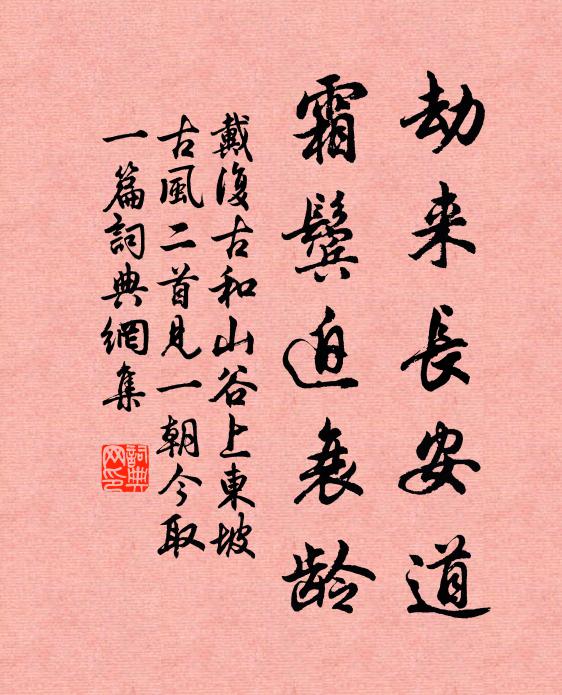 劫来長安道
霜鬓迫衰龄
戴復古和山谷上東坡
古風二首見一朝今取
一篇詞典網集
詞典网印